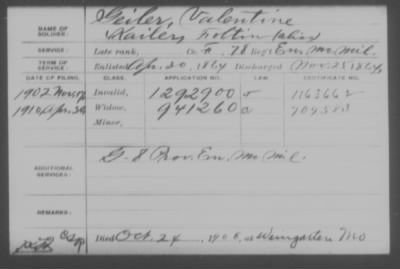 NAME OF SOLDIER: Geiler, Valentine
Kailer, Foltin (alias)
SERVICE: Late rank, Co. H, 78 Reg't En. Mo. Mil.
TERM OF SERVICE: Enlisted Apr. 20, 1864 Discharged Nov. 25 1864
DATE OF FILING. CLASS. APPLICATION NO. LAW CERTIFICATE NO.
1902 Nov. Invalid, 1292900 1163662
1910 Apr. Widow, 941260 709583
Minor,
ADDITIONAL SERVICES: G. 8 Prov. En. Mo Mil.
REMARKS:
Died Oct. 24, 1908, at Weingarten Mo